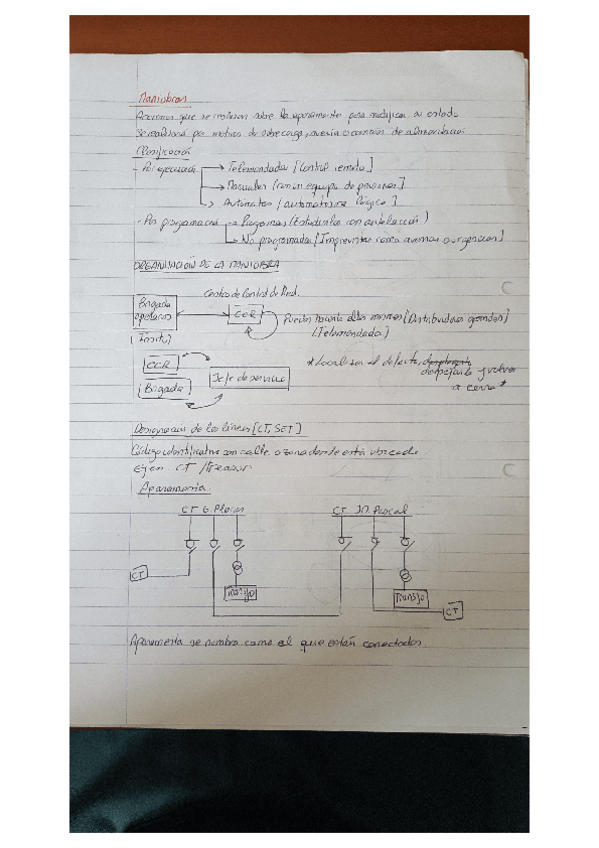 Maniobras
Acciones que se realizan sobre la aparamenta para modificar su estado
Se realizará por motivos de sobrecarga, avería o corrección de alimentación
Clasificación
- Por operación → Telemandadas [Control remoto]
→ Manuales [ equipo de personas]
→ Automáticas [automatismo lógico]
- Por programación → Programas (Estudiantes con antelación)
→ No programadas [Imprevistas como averías o urgencias]
ORGANIZACIÓN DE LA MANIOBRA
Centro de Control de Red.
Brigada operarios
CCR
Pueden hacerlo ellos mismos [Distribuidoras grandes]
(Insitu)
[Telemandada]
CCR
Brigada
Jefe de servicio
*Localizar el defecto,
despejarlo y volver
a cerrar*
Designación de las líneas [CT, SET]
Código identificativo con calle o zona donde está ubicado
Ejem. CT
Aparamenta
CT G. Flores
CT J.M. Pascal
CT
Trafo
Transfo
CT
Aparamenta se nombra como el que están conectados.